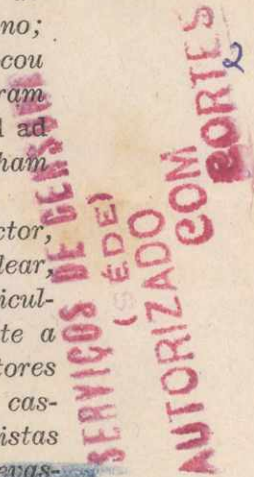 no;
cou
ram
l ad
ham
ctor,
lear,
icul-
te a
tores
cas-
istas
evas-
SERVIÇOS DE CENSURA
(SÉDE)
AUTORIZADO
COM
CORTES
2